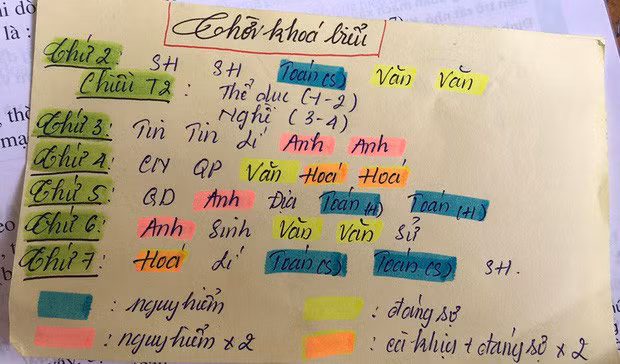 Thời khoá biểu
Thứ 2: SH SH Toán (S) Văn Văn
Chiều T2: Thể dục (1-2)
Nghề (3-4)
Thứ 3: Tin Tin Lí Anh Anh
Thứ 4: CN QP Văn Hoá Hoá
Thứ 5: GD Anh Địa Toán (H) Toán (H)
Thứ 6: Anh Sinh Văn Văn Sử
Thứ 7: Hoá Lí Toán (S) Toán (S) SH.
: nguy hiểm : đáng sợ
: nguy hiểm x 2 : cà khịa + đáng sợ x 2